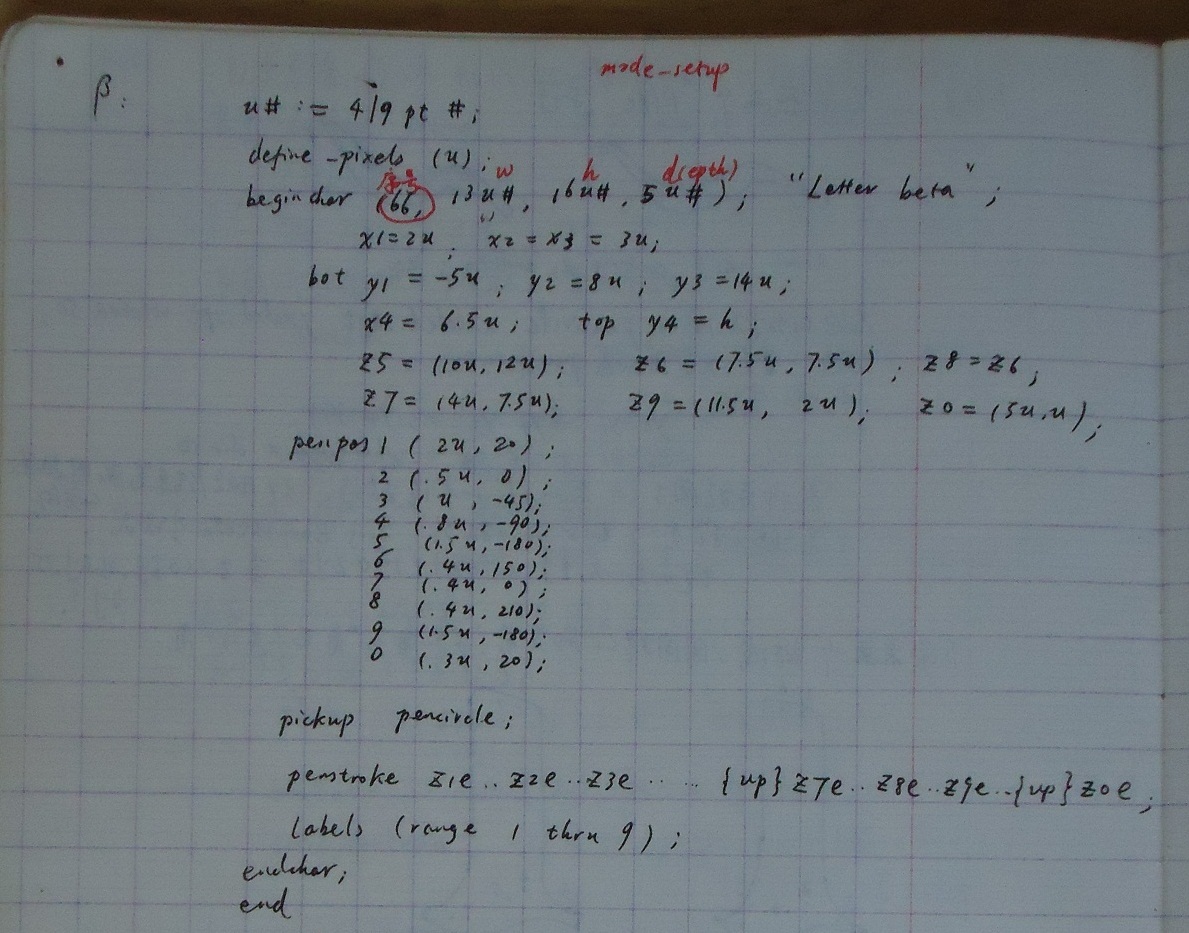 mode-setup
β:
u# := 4/9 pt #;
define-pixels (u);
序号 w h d(epth)
beginchar (66, 13u#, 16u#, 5u#); "Letter beta";
x1=2u; x2=x3=3u;
bot y1 = -5u; y2=8u; y3=14u;
x4= 6.5u; top y4=h;
z5 = (10u, 12u); z6 = (7.5u, 7.5u); z8=z6;
z7= (4u, 7.5u); z9=(11.5u, 2u); z0=(5u,u);
penpos 1 (2u, 20);
2 (.5u, 0);
3 (u, -45);
4 (.8u, -90);
5 (1.5u, -180);
6 (.4u, 150);
7 (.4u, 0);
8 (.4u, 210);
9 (1.5u, -180);
0 (.3u, 20);
pickup pencircle;
penstroke z1e..z2e..z3e .. .. {up}z7e..z8e..z9e..{up}z0e;
labels (range 1 thru 9);
endchar;
end